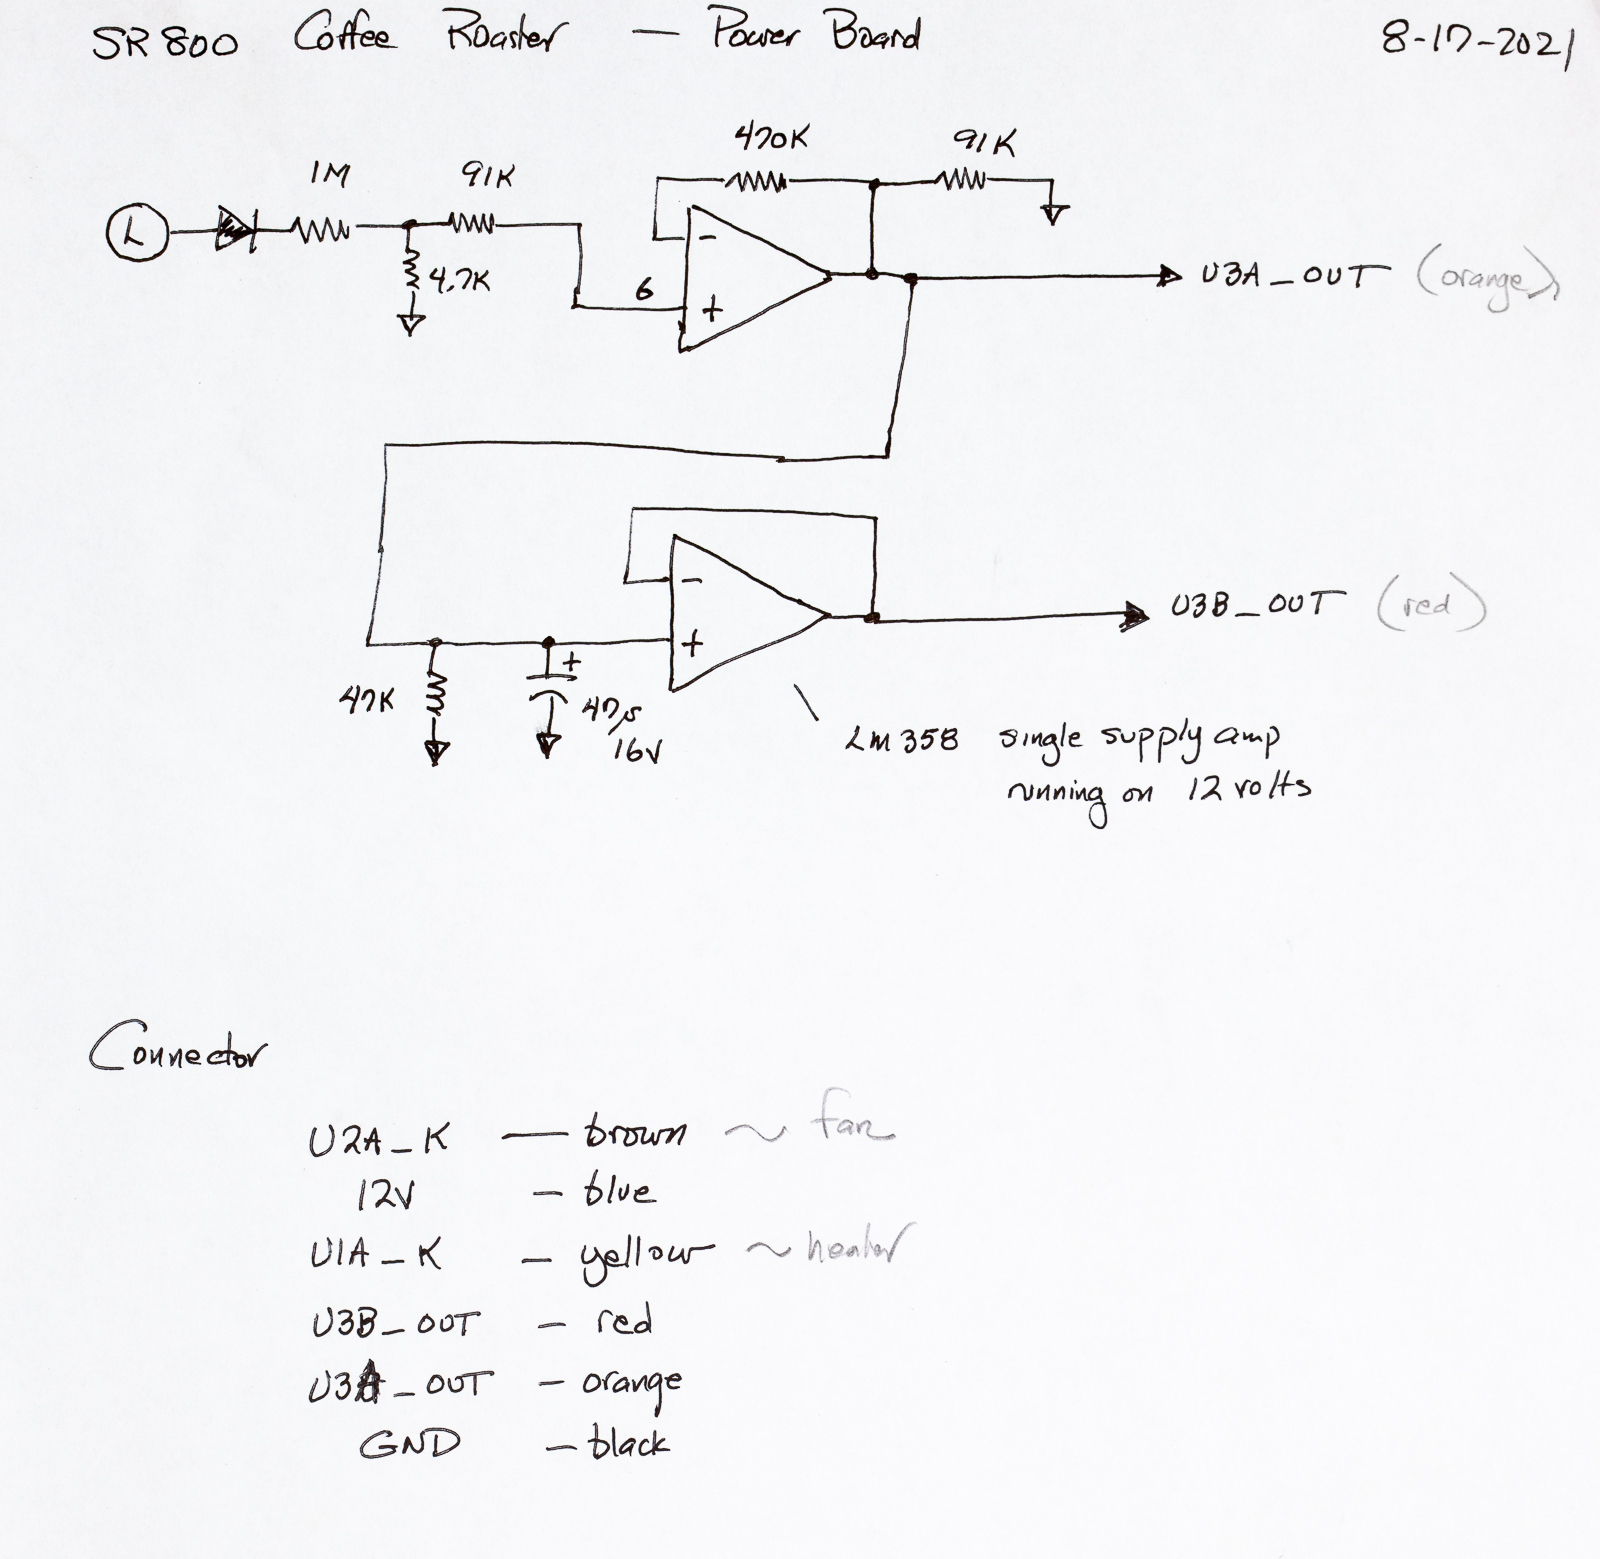 SR800 Coffee Roaster — Power Board 8-17-2021
470K 91K
1M 91K
L
4.7K
6
-
+
U3A_OUT (orange)
-
+
U3B_OUT (red)
47K
+
47µ
16V
LM358 single supply amp
running on 12 volts
Connector
U2A_K — brown ~ fan
12V — blue
U1A_K — yellow ~ heater
U3B_OUT — red
U3A_OUT — orange
GND — black